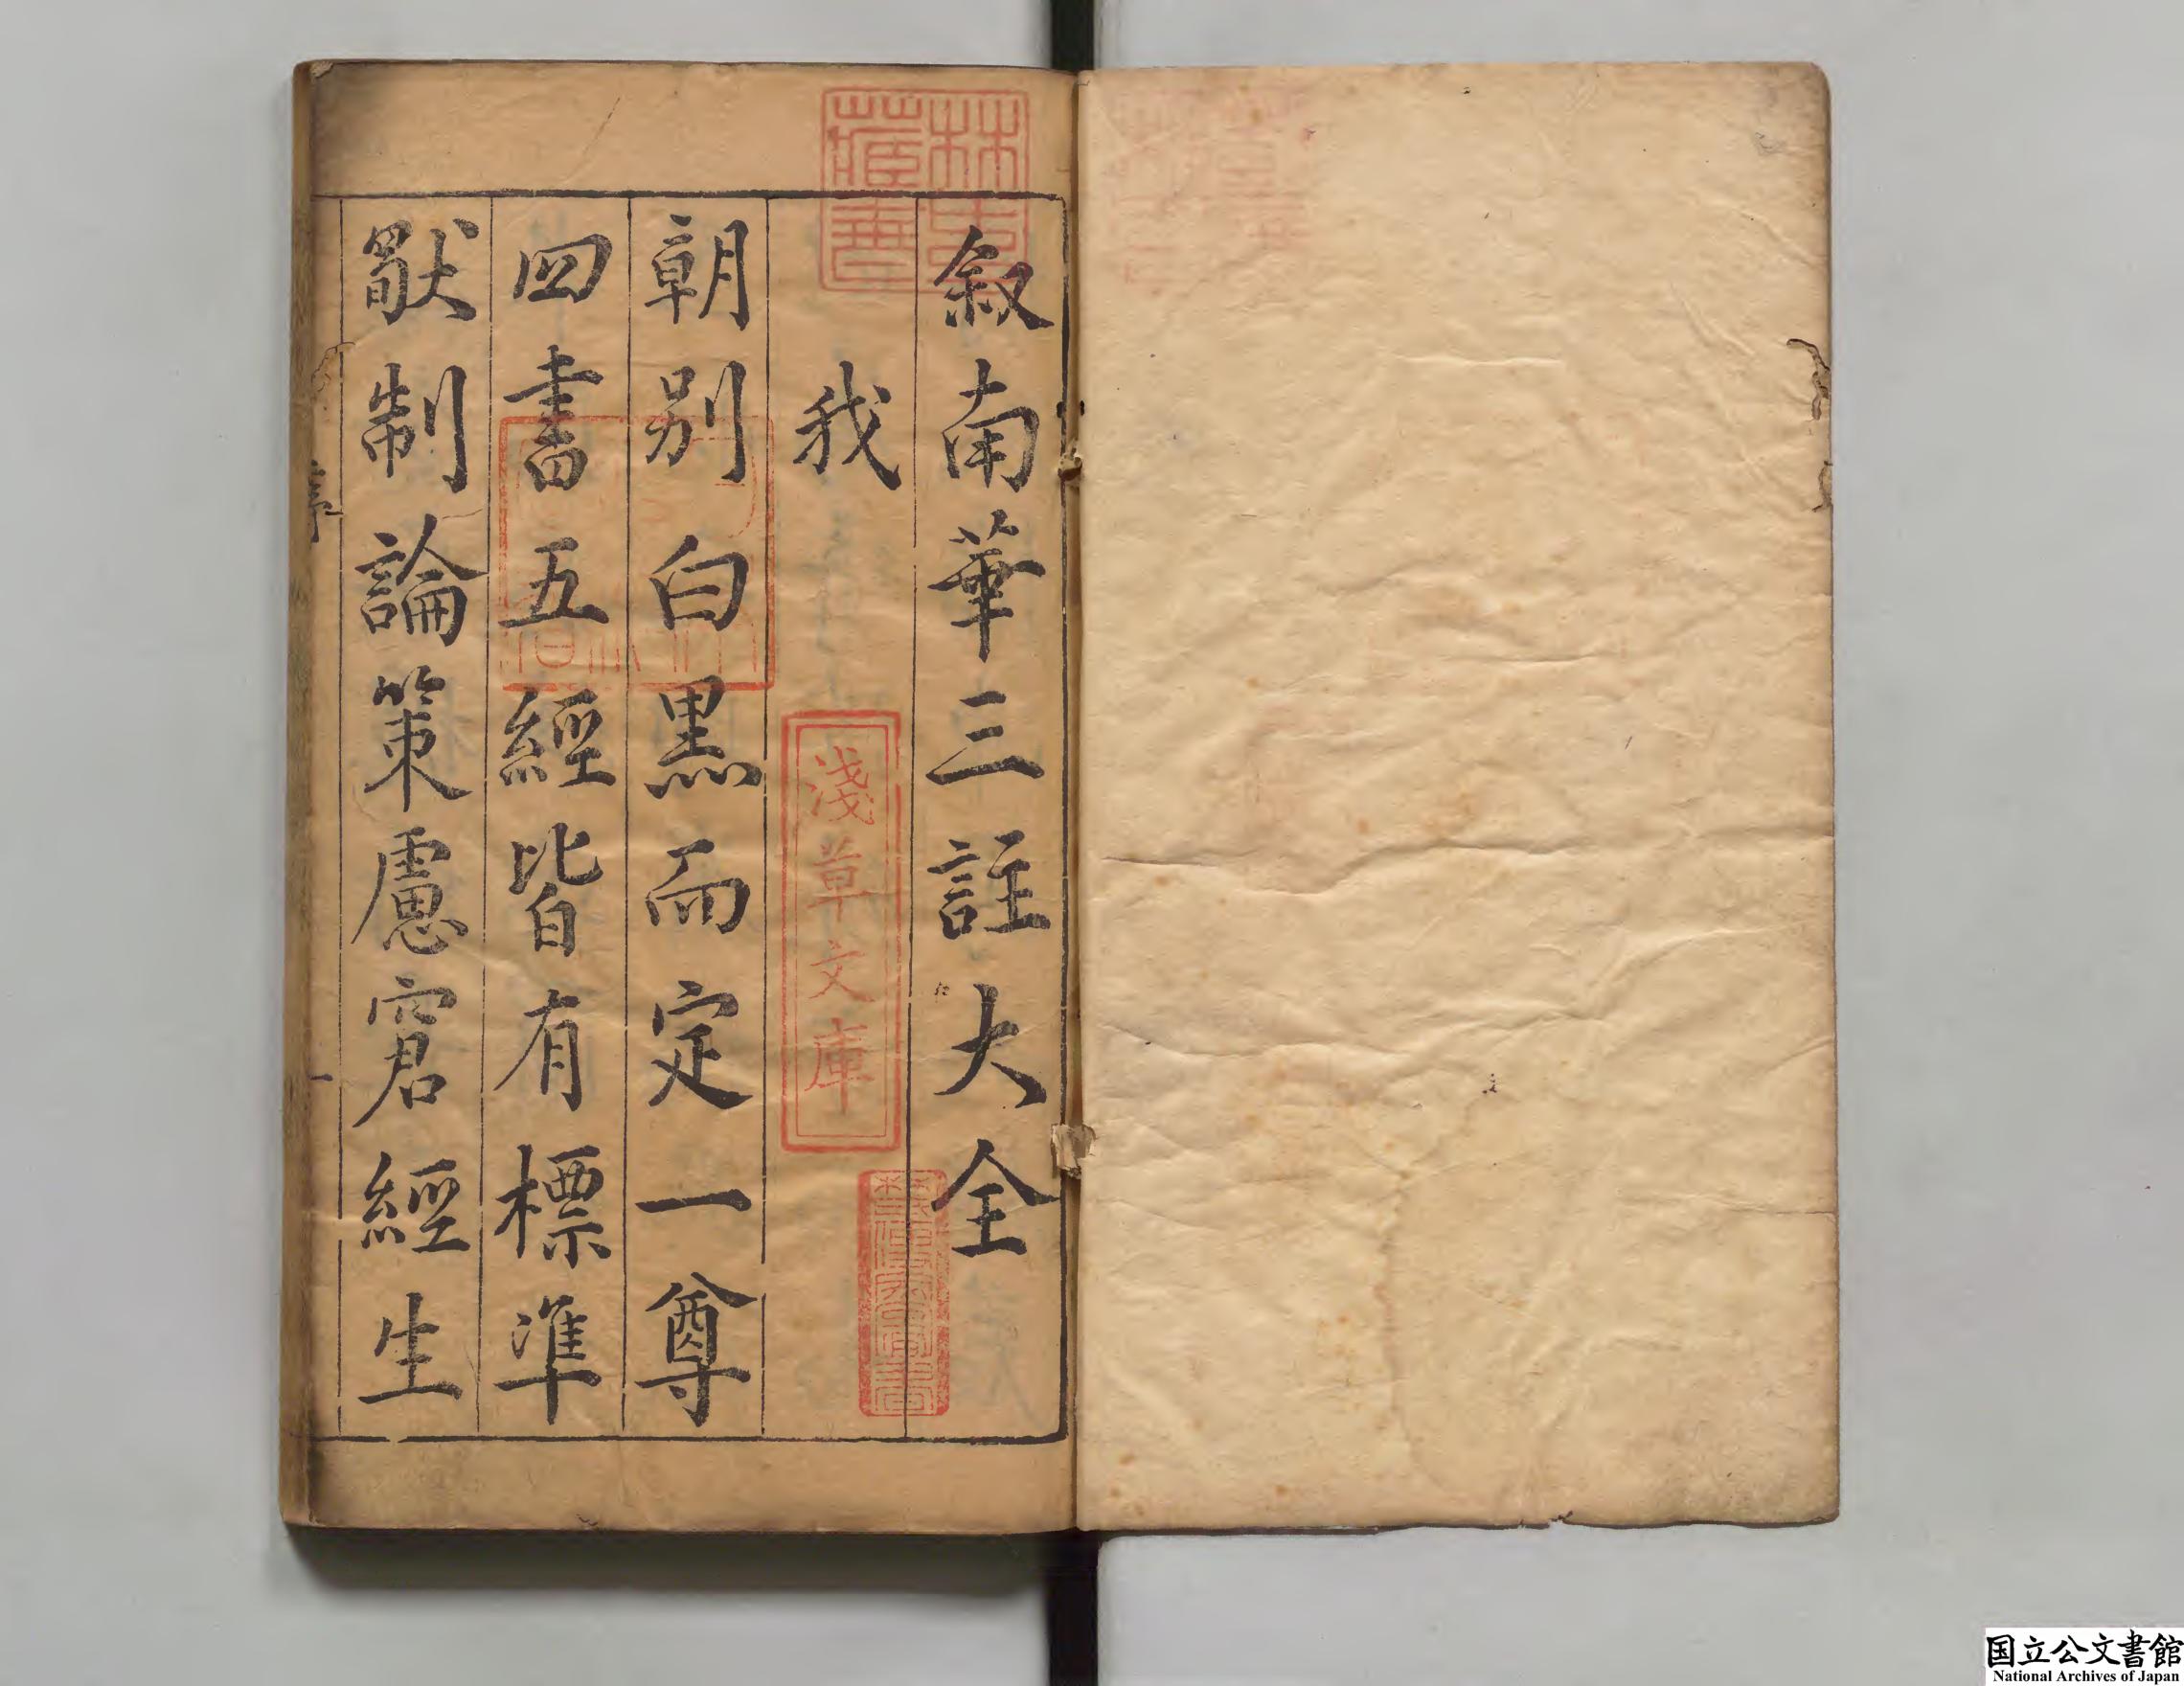 叙南華三註大全
我
朝別白黒而定一尊
四書五經皆有標準
猷制論策慮窘經生
序
一
林氏藏書
淺草文庫
国立公文書館
National Archives of Japan